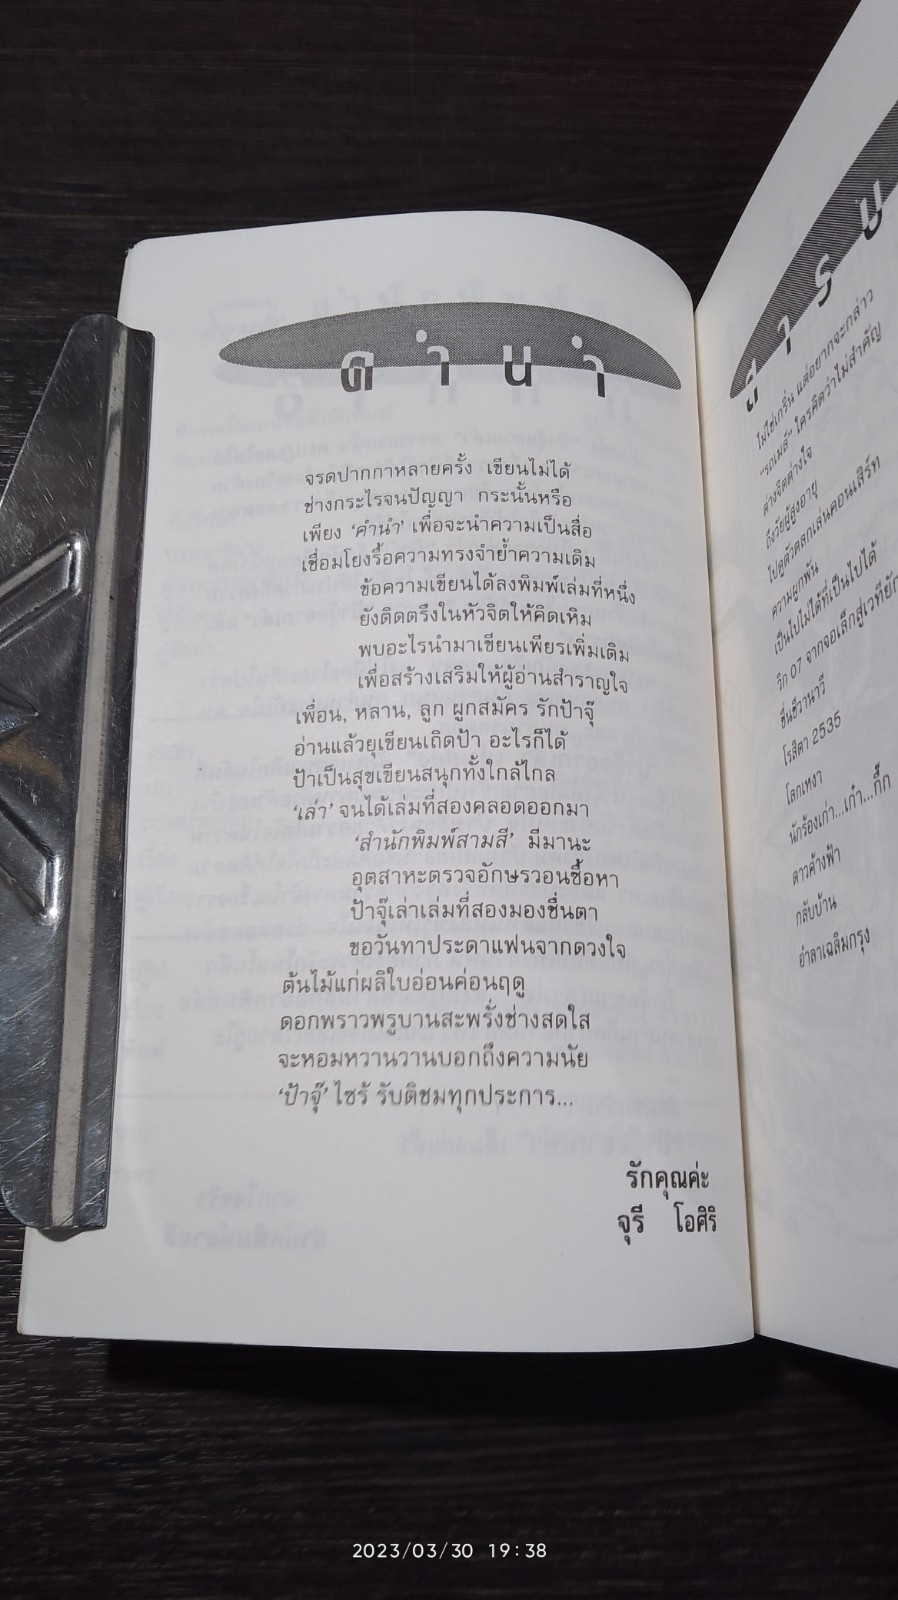 คำนำ
จรดปากกาหลายครั้ง เขียนไม่ได้
ช่างกระไรจนปัญญา กระนั้นหรือ
เพียง ‘คำนำ’ เพื่อจะนำความเป็นสื่อ
เชื่อมโยงรื้อความทรงจำย้ำความเดิม
ข้อความเขียนได้ลงพิมพ์เล่มที่หนึ่ง
ยังติดตรึงในหัวจิตให้คิดเหิม
พบอะไรนำมาเขียนเพียรเพิ่มเติม
เพื่อสร้างเสริมให้ผู้อ่านสำราญใจ
เพื่อน, หลาน, ลูก ผูกสมัคร รักป้าจุ๊
อ่านแล้วยุเขียนเถิดป้า อะไรก็ได้
ป้าเป็นสุขเขียนสนุกทั้งใกล้ไกล
‘เล่า’ จนได้เล่มที่สองคลอดออกมา
‘สำนักพิมพ์สามสี’ มีมานะ
อุตสาหะตรวจอักษรวอนซื้อหา
ป้าจุ๊เล่าเล่มที่สองมองชื่นตา
ขอวันทาประดาแฟนจากดวงใจ
ต้นไม้แก่ผลิใบอ่อนค่อนฤดู
ดอกพราวพรูบานสะพรั่งช่างสดใส
จะหอมหวานวานบอกถึงความนัย
‘ป้าจุ๊’ ไซร้ รับติชมทุกประการ...
รักคุณค่ะ
จุรี โอศิริ
สารบ
ไม่ใช่เกริ่น แต่อยากจะกล่าว
“รถเมล์” ใครคิดว่าไม่สำคัญ
ต่างจิตต่างใจ
ถึงวัยผู้สูงอายุ
ไปดูตัวตลกเล่นคอนเสิร์ท
ความผูกพัน
เป็นไปไม่ได้ที่เป็นไปได้
วิก 07 จากจอเล็กสู่เวทียัก
ชื่นชีวานาวี
โรสิตา 2535
โลกเหงา
นักร้องเก่า...เก๋า...กึ้ก
ดาวค้างฟ้า
กลับบ้าน
อำลาเฉลิมกรุง
2023/03/30 19:38